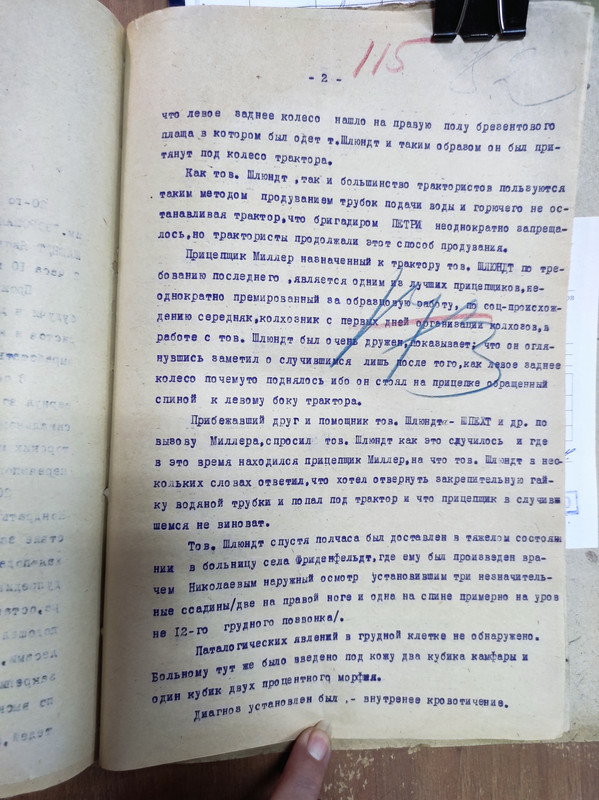 - 2 -
115
что левое заднее колесо нашло на правую полу брезентового
плаща в котором был одет т.Шлюндт и таким образом он был при-
тянут под колесо трактора.
Как тов. Шлюндт ,так и большинство трактористов пользуются
таким методом продуванием трубок подачи воды и горючего не ос-
танавливая трактор,что бригадиром ПЕТРИ неоднократно запреща-
лось,но трактористы продолжали этот способ продувания.
Прицепщик Миллер назначенный к трактору тов. ШЛЮНДТ по тре-
бованию последнего ,является одним из лучших прицепщиков,не-
однократно премированный за образцовую работу, по соц-происхож-
дению середняк,колхозник с первых дней организации колхозов,в
работе с тов. Шлюндт был очень дружен,показывает; что он огля-
нувшись заметил о случившимся лишь после того,как левое заднее
колесо почемуто поднялось ибо он стоял на прицепке обращенный
спиной к левому боку трактора.
Прибежавший друг и помощник тов. Шлюндт- ШПЕХТ и др. по
вызову Миллера,спросил тов. Шлюндт как это случилось и где
в это время находился прицепщик Миллер,на что тов. Шлюндт в нес-
кольких словах ответил,что хотел отвернуть закрепительную гай-
ку водяной трубки и попал под трактор и что прицепщик в случивш
шемся не виноват.
Тов. Шлюндт спустя полчаса был доставлен в тяжелом состоян
нии в больницу села Фриденфельдт,где ему был произведен вра-
чем Николаевым наружный осмотр установившим три незначитель-
ные ссадины/две на правой ноге и одна на спине примерно на уров
не 12-го грудного позвонка/.
Паталогических явлений в грудной клетке не обнаружено.
Больному тут же было введено под кожу два кубика камфары и
один кубик двух процентного морфия.
Диагноз установлен был ,- внутренее кровотичение.